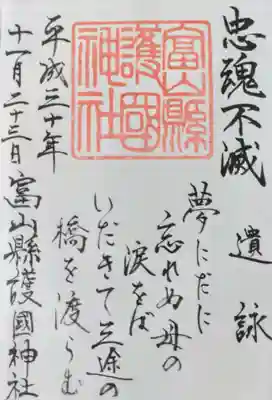 忠魂不滅
遺詠
富山縣
護國
神社
夢にだに
忘れぬ母の
涙をば
いだきて三途の
橋を渡らむ
平成三十年
十一月二十三日
富山縣護國神社